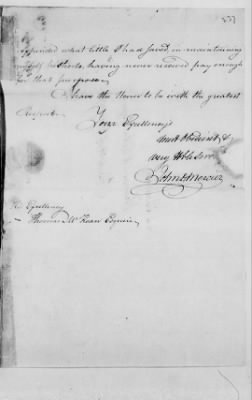 expended what little I had saved, in maintaining
myself in Clothes, having never received pay enough
for that purpose.
I have the Honor to be with the greatest
Respect
Your Excellency's
most Obedient &
very Hble Servt
John D. Mercier
His Excellency
Thomas McKean Esquire